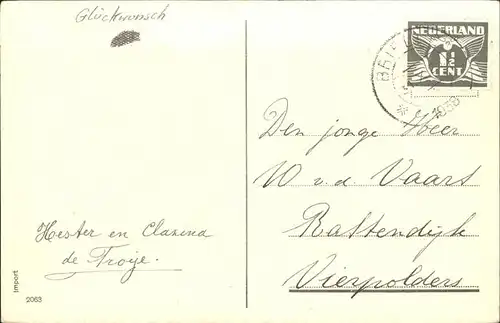 Glückwunsch
NEDERLAND
1½
CENT
BRIEL
1938
Den jonge Heer
W v.d. Vaart
Rattendijk
Vierpolders
Hester en Clazina
de Troije.
Import
2063